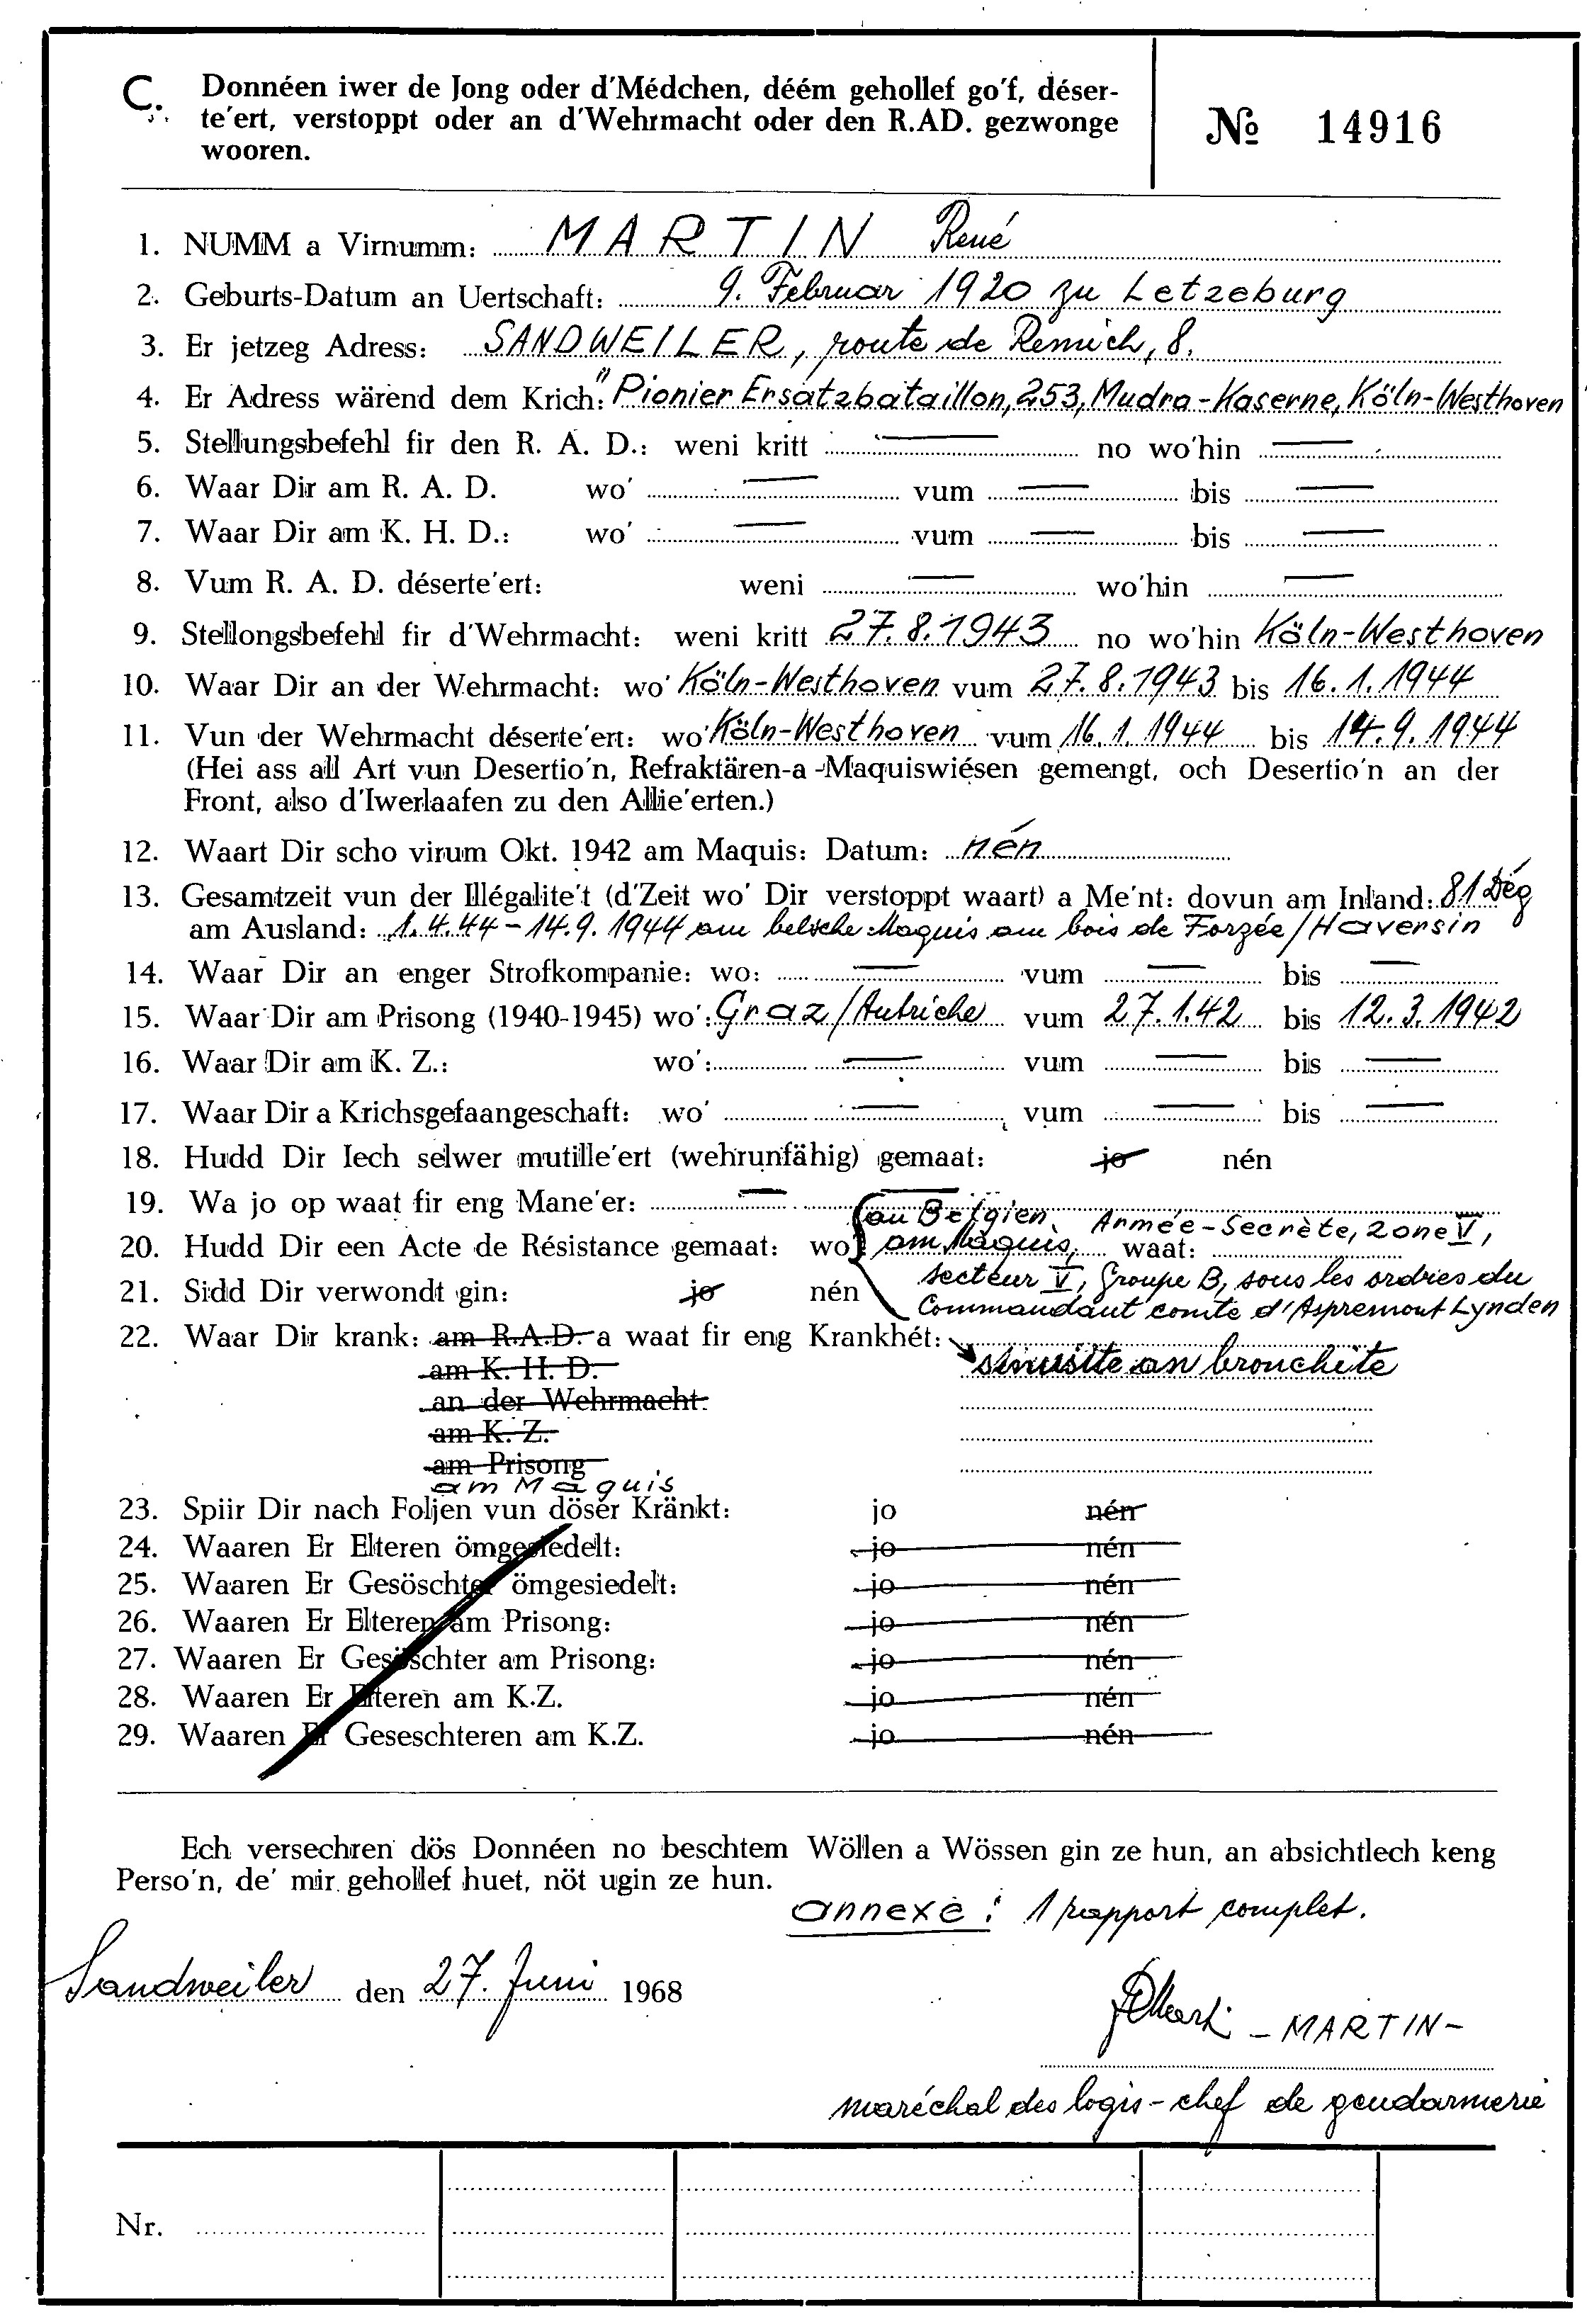 C. Donnéen iwer de Jong oder d'Médchen, déém gehollef go'f, déser-
te'ert, verstoppt oder an d'Wehrmacht oder den R.AD. gezwonge
wooren.
№ 14916
1. NUMM a Virnumm: MARTIN René
2. Geburts-Datum an Uertschaft: 9. Februar 1920 zu Letzeburg
3. Er jetzeg Adress: SANDWEILER, route de Remich, 8.
4. Er Adress wärend dem Krich: "Pionier Ersatzbataillon, 253, Mudra-Kaserne, Köln-Westhoven
5. Stellungsbefehl fir den R. A. D.: weni kritt — no wo'hin —
6. Waar Dir am R. A. D. wo' — vum — bis —
7. Waar Dir am K. H. D.: wo' — vum — bis —
8. Vum R. A. D. déserte'ert: weni — wo'hin —
9. Stellongsbefehl fir d'Wehrmacht: weni kritt 27.8.1943 no wo'hin Köln-Westhoven
10. Waar Dir an der Wehrmacht: wo' Köln-Westhoven vum 27.8.1943 bis 16.1.1944
11. Vun der Wehrmacht déserte'ert: wo' Köln-Westhoven vum 16.1.1944 bis 14.9.1944
(Hei ass all Art vun Desertio'n, Refraktären-a-Maquiswiésen gemengt, och Desertio'n an der
Front, also d'Iwerlaafen zu den Allie'erten.)
12. Waart Dir scho virum Okt. 1942 am Maquis: Datum: nén
13. Gesamtzeit vun der Illégalite't (d'Zeit wo' Dir verstoppt waart) a Me'nt: dovun am Inland: 81 Dég
am Ausland: 1.4.44 - 14.9.1944 am belsche Maquis am bois de Forzée/Haversin
14. Waar Dir an enger Strofkompanie: wo: — vum — bis —
15. Waar Dir am Prisong (1940-1945) wo': Graz/Autriche vum 27.1.42 bis 12.3.1942
16. Waar Dir am K. Z.: wo': — vum — bis —
17. Waar Dir a Krichsgefaangeschaft: wo' — vum — bis —
18. Hudd Dir Iech selwer mutille'ert (wehrunfähig) gemaat: jo nén
19. Wa jo op waat fir eng Mane'er: —
20. Hudd Dir een Acte de Résistance gemaat: wo: an Belgien am Maquis, waat: Armée-Secrète, zone V,
secteur V, Groupe B, sous les ordres du
Commandant comte d'Aspremont Lynden
21. Sidd Dir verwondt gin: jo nén
22. Waar Dir krank: am R.A.D. a waat fir eng Krankhét: sinusite an bronchite
am K. H. D.
an der Wehrmacht
am K. Z.
am Prisong
am Maquis
23. Spiir Dir nach Foljen vun döser Kränkt: jo nén
24. Waaren Er Elteren ömgesiedelt: jo nén
25. Waaren Er Gesöschter ömgesiedelt: jo nén
26. Waaren Er Elteren am Prisong: jo nén
27. Waaren Er Gesöschter am Prisong: jo nén
28. Waaren Er Elteren am K.Z. jo nén
29. Waaren Er Geseschteren am K.Z. jo nén
Ech versechren dös Donnéen no beschtem Wöllen a Wössen gin ze hun, an absichtlech keng
Perso'n, de' mir gehollef huet, nöt ugin ze hun.
annexe: 1 rapport complet.
Sandweiler den 27. Juni 1968
- MARTIN -
maréchal des logis-chef de gendarmerie
Nr.